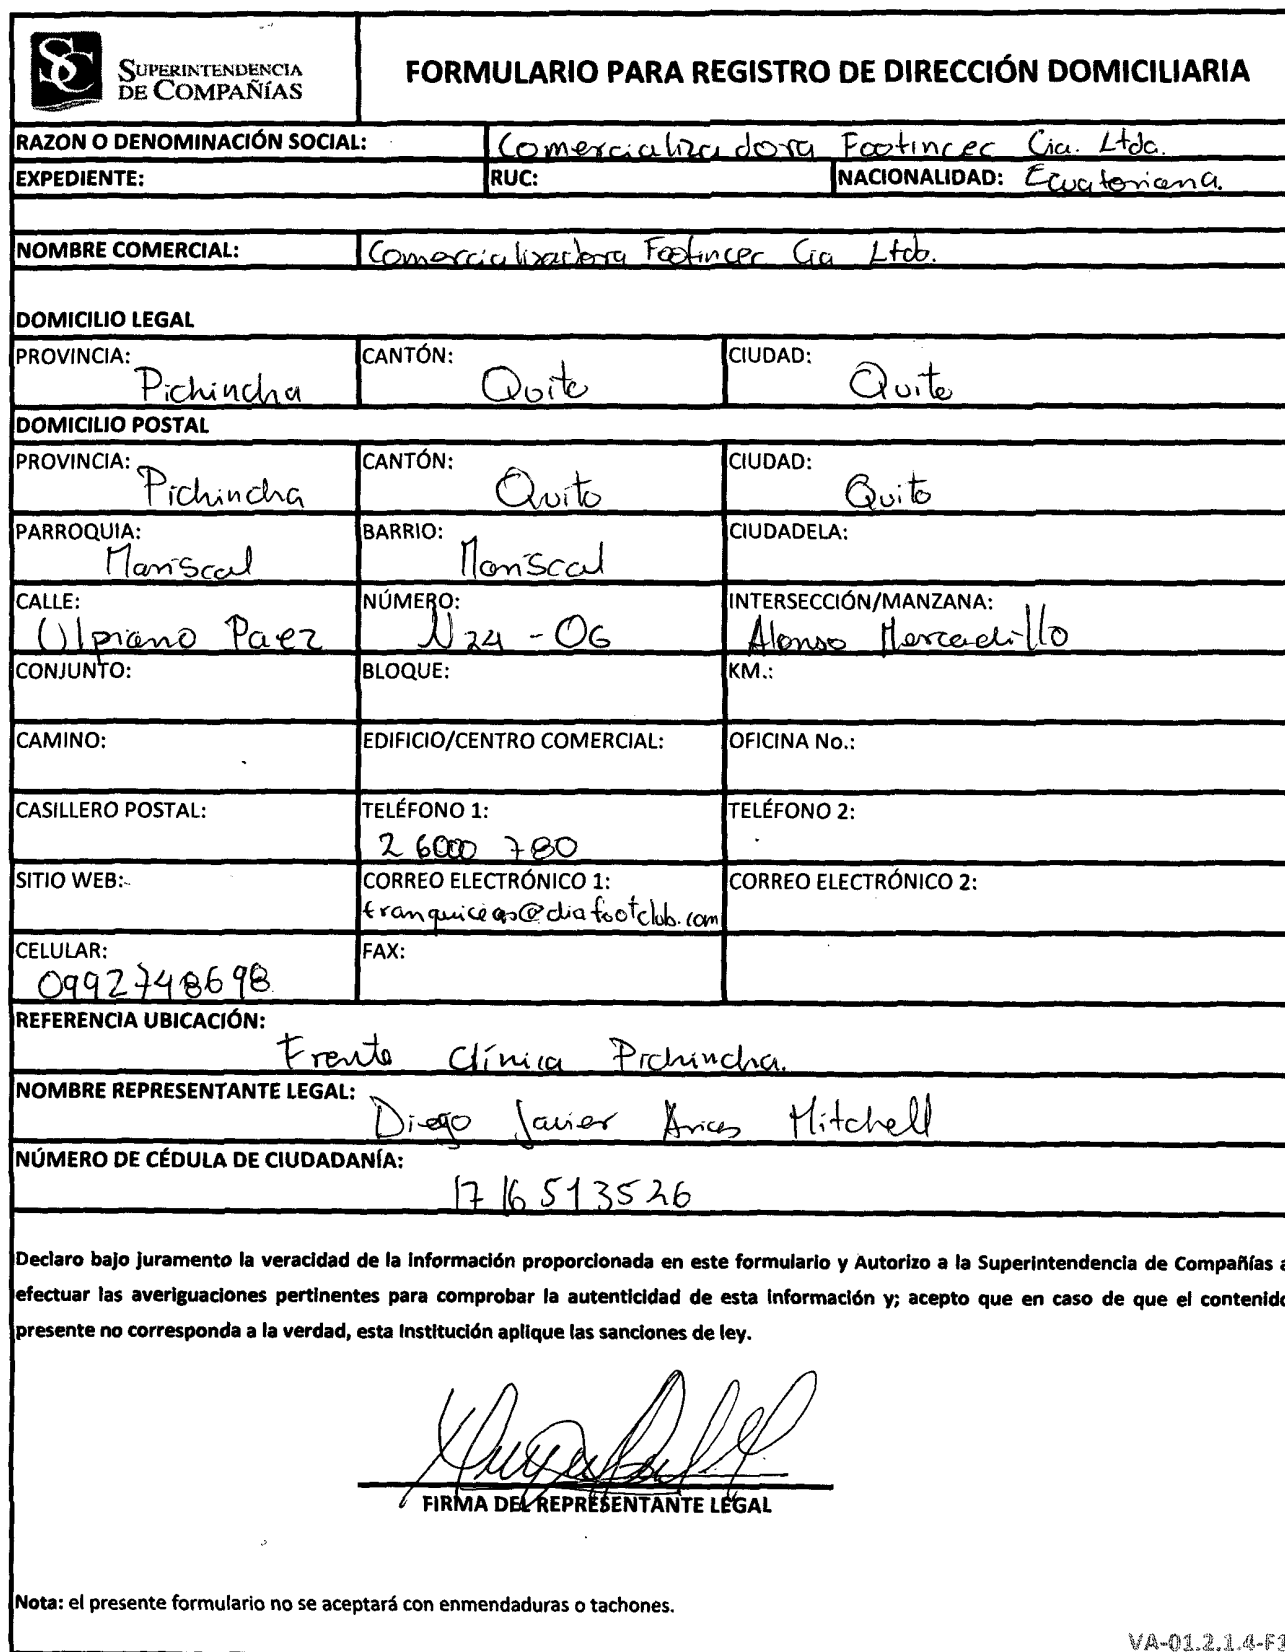 SC SUPERINTENDENCIA
DE COMPAÑÍAS
FORMULARIO PARA REGISTRO DE DIRECCIÓN DOMICILIARIA
RAZON O DENOMINACIÓN SOCIAL: Comercializadora Footincec Cia. Ltda.
EXPEDIENTE: RUC: NACIONALIDAD: Ecuatoriana.
NOMBRE COMERCIAL: Comercializadora Footincec Cia Ltda.
DOMICILIO LEGAL
PROVINCIA: CANTÓN: CIUDAD:
Pichincha Quito Quito
DOMICILIO POSTAL
PROVINCIA: CANTÓN: CIUDAD:
Pichincha Quito Quito
PARROQUIA: BARRIO: CIUDADELA:
Mariscal Mariscal
CALLE: NÚMERO: INTERSECCIÓN/MANZANA:
Ulpiano Paez N24-06 Alonso Mercadillo
CONJUNTO: BLOQUE: KM.:
CAMINO: EDIFICIO/CENTRO COMERCIAL: OFICINA No.:
CASILLERO POSTAL: TELÉFONO 1: TELÉFONO 2:
2 6000 780
SITIO WEB: CORREO ELECTRÓNICO 1: CORREO ELECTRÓNICO 2:
CELULAR: FAX:
0992748698
REFERENCIA UBICACIÓN:
Frente Clínica Pichincha.
NOMBRE REPRESENTANTE LEGAL:
Diego Javier Mitchell
NÚMERO DE CÉDULA DE CIUDADANÍA:
1716513526
Declaro bajo juramento la veracidad de la información proporcionada en este formulario y Autorizo a la Superintendencia de Compañías a
efectuar las averiguaciones pertinentes para comprobar la autenticidad de esta información y; acepto que en caso de que el contenido
presente no corresponda a la verdad, esta Institución aplique las sanciones de ley.
FIRMA DEL REPRESENTANTE LEGAL
Nota: el presente formulario no se aceptará con enmendaduras o tachones.
VA-01.2.1.4-F1